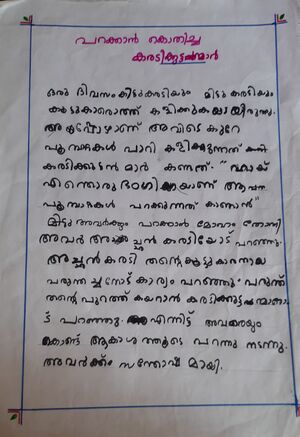 പറക്കാൻ കൊതിച്ച
കരടിക്കുട്ടൻമാർ
ഒരു ദിവസം കിട്ടുകരടിയും മിട്ടു കരടിയും
കൂട്ടുകാരൊത്ത് കളിക്കുകയായിരുന്നു.
അപ്പോഴാണ് അവിടെ കുറേ
പൂമ്പാറ്റകൾ പാറി കളിക്കുന്നത്
കരടിക്കുട്ടൻ മാർ കണ്ടത്. "ഹായ്
എന്തൊരു ഭംഗിയാണ് ആ
പൂമ്പാറ്റകൾ പറക്കുന്നത് കാണാൻ"
മിട്ടു അവർക്കും പറക്കാൻ മോഹം തോന്നി
അവർ അച്ഛൻ കരടിയോട് പറഞ്ഞു.
അച്ഛൻ കരടി തന്റെ കൂട്ടുകാരനായ
പരുന്തച്ചനോട് കാര്യം പറഞ്ഞു. പരുന്ത്
തന്റെ പുറത്ത് കയറാൻ കരടിക്കുട്ടൻമാരോ
ട് പറഞ്ഞു. എന്നിട്ട് അവരേയും
കൊണ്ട് ആകാശത്തൂടെ പറന്നു നടന്നു.
അവർക്കും സന്തോഷമായി.